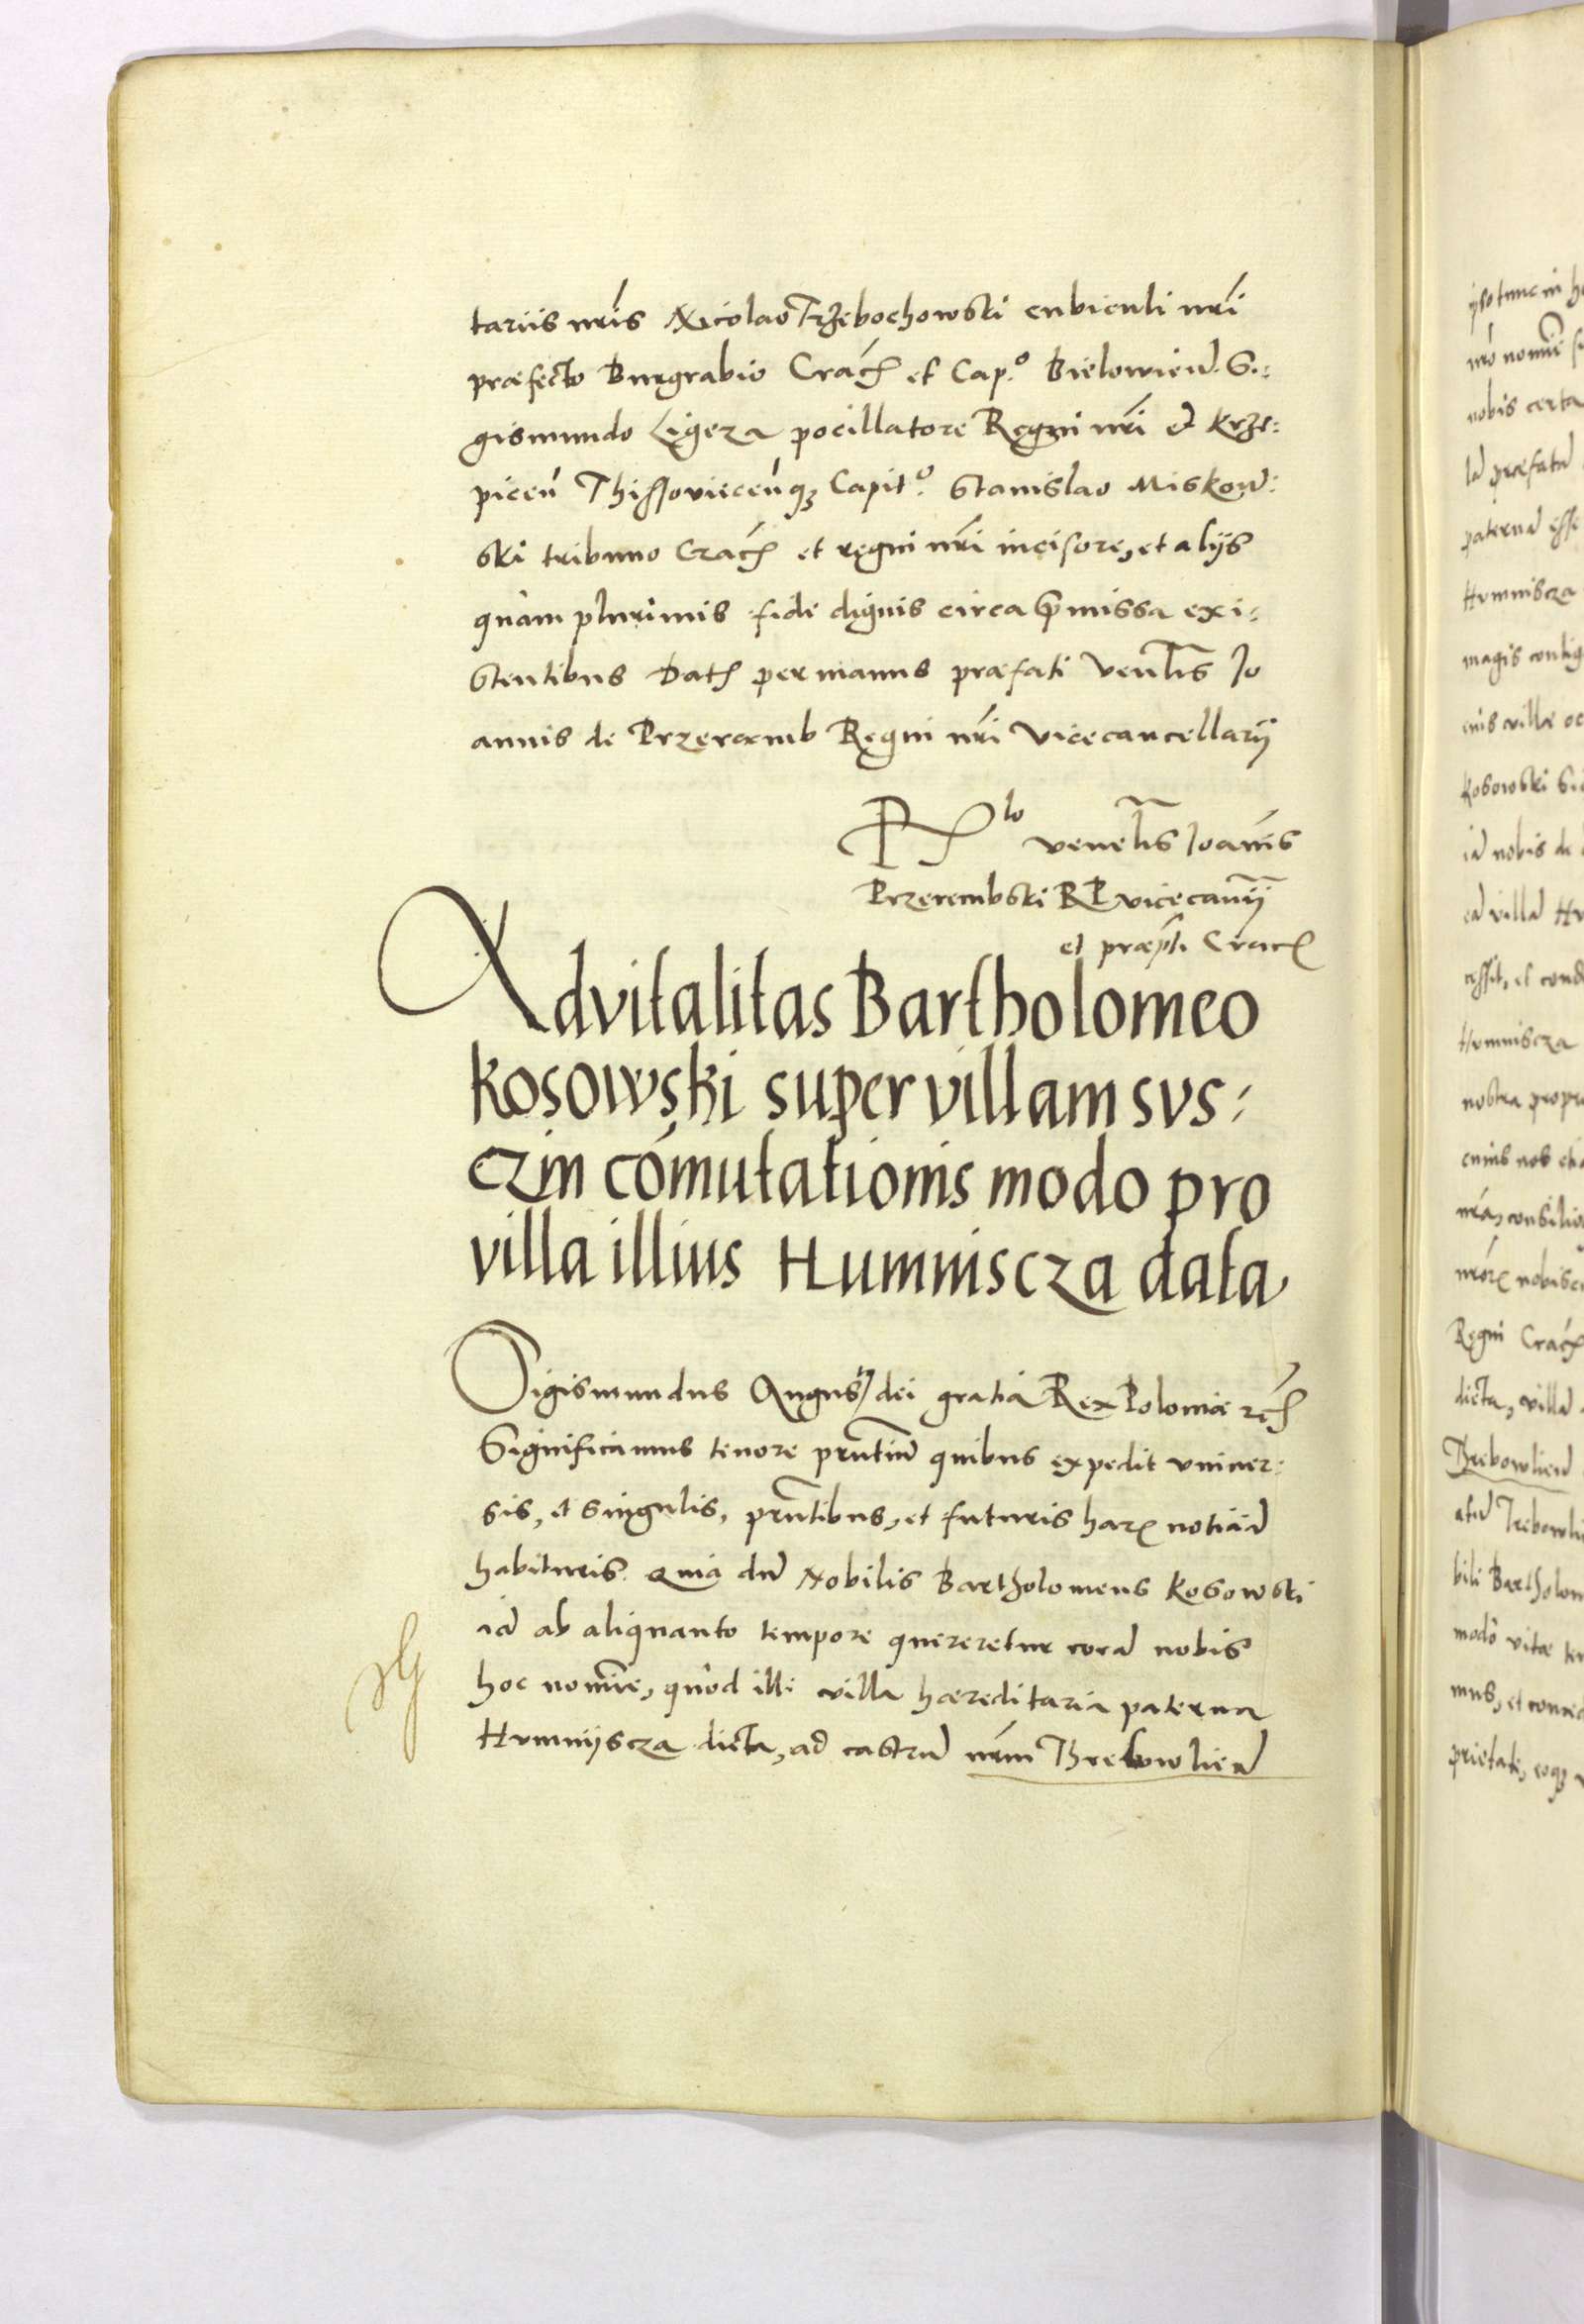 tariis nr̃is Nicolao Trzebochowski cubiculi nr̃i
præfecto Burgrabio Crac̃ et Cap.º Bielowień. Si:
gismundo Ligeza pocillatore Regni nr̃i et Krze:
picen̄ Thissoviecen̄q3 Capit.º Stanislao Miskow:
ski tribuno Crac̃ et regni nr̃i incisore, et alijs
quàm plurimis fide dignis circa p̄missa exi:
stentibus Dat̃ per manus præfati Ven̄lis Jo
annis de Przeremb Regni nr̃i Vicecancellarij
R lo venel̃is Joan̄is
Przerembski RP vicecan̄ij
et præp̃ti Crac̃
Advitalitas Bartholomeo
Kosowski super villam sus:
czin cōmutationis modo pro
villa illius Humniscza data
Sigismundus Augus9 dei gratia Rex Poloniæ etc̃
Significamus tenore prñtium̄ quibus expedit vniuer:
sis, et singulis, prñtibus, et futuris har̃ noticiā
habituris. Quia dū Nobilis Bartholomeus Kosowski
iā ab aliquanto tempore quereretur corā nobis
hoc nom̃ine, quòd illi villa hæreditaria paterna
Humnijscza dicta, ad castrū nr̃m Threbowlień
ijso tunc in
nr̃o nom̃i
nobis certa
præfatā
paternā esse
Humniscza
magis contig
eius villæ oc
Kosowski
iā nobis de
eā villā Hu
cessit, et cond
Humniscza
nostra propr
cuius nob
nr̃a, consilio
nr̃or̃ nobisc
Regni Crac̃
dicta, villā
Threbowlień
Trebowli
bili Bartholom
modo vitæ te
mus, et conce
prietate, eoq3